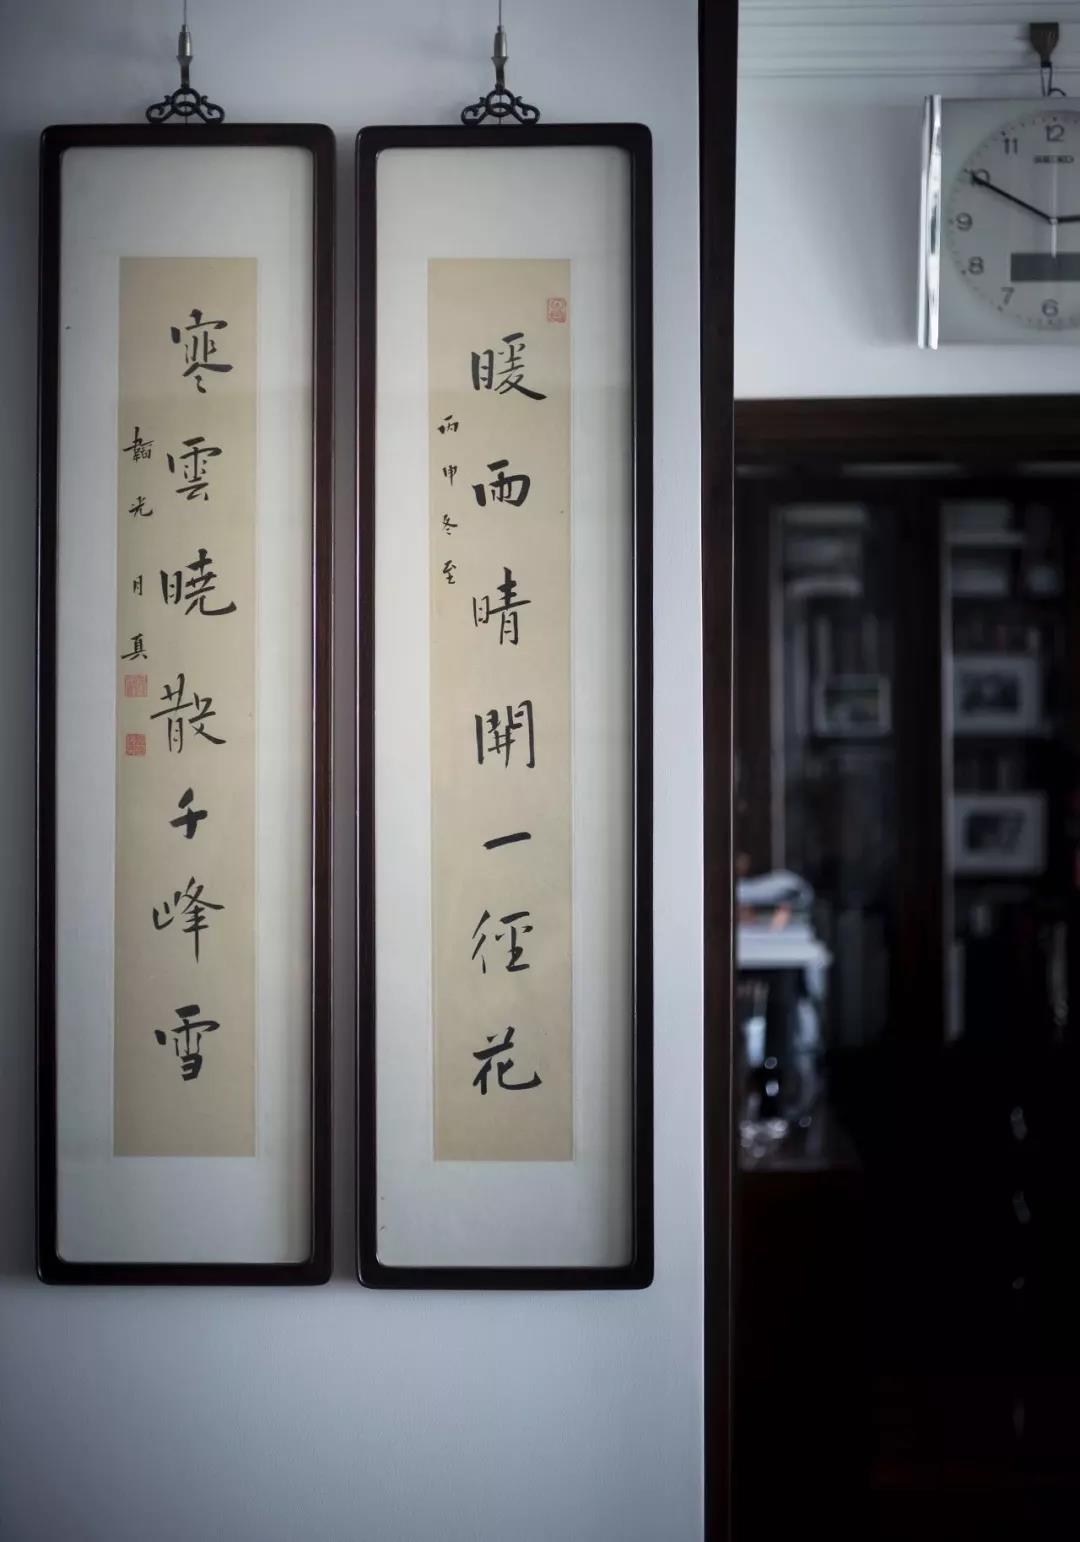 暖雨晴開一徑花
丙申冬至
寒雲曉散千峰雪
韜光月真
12
11
SEIKO
10
9
8
7
6